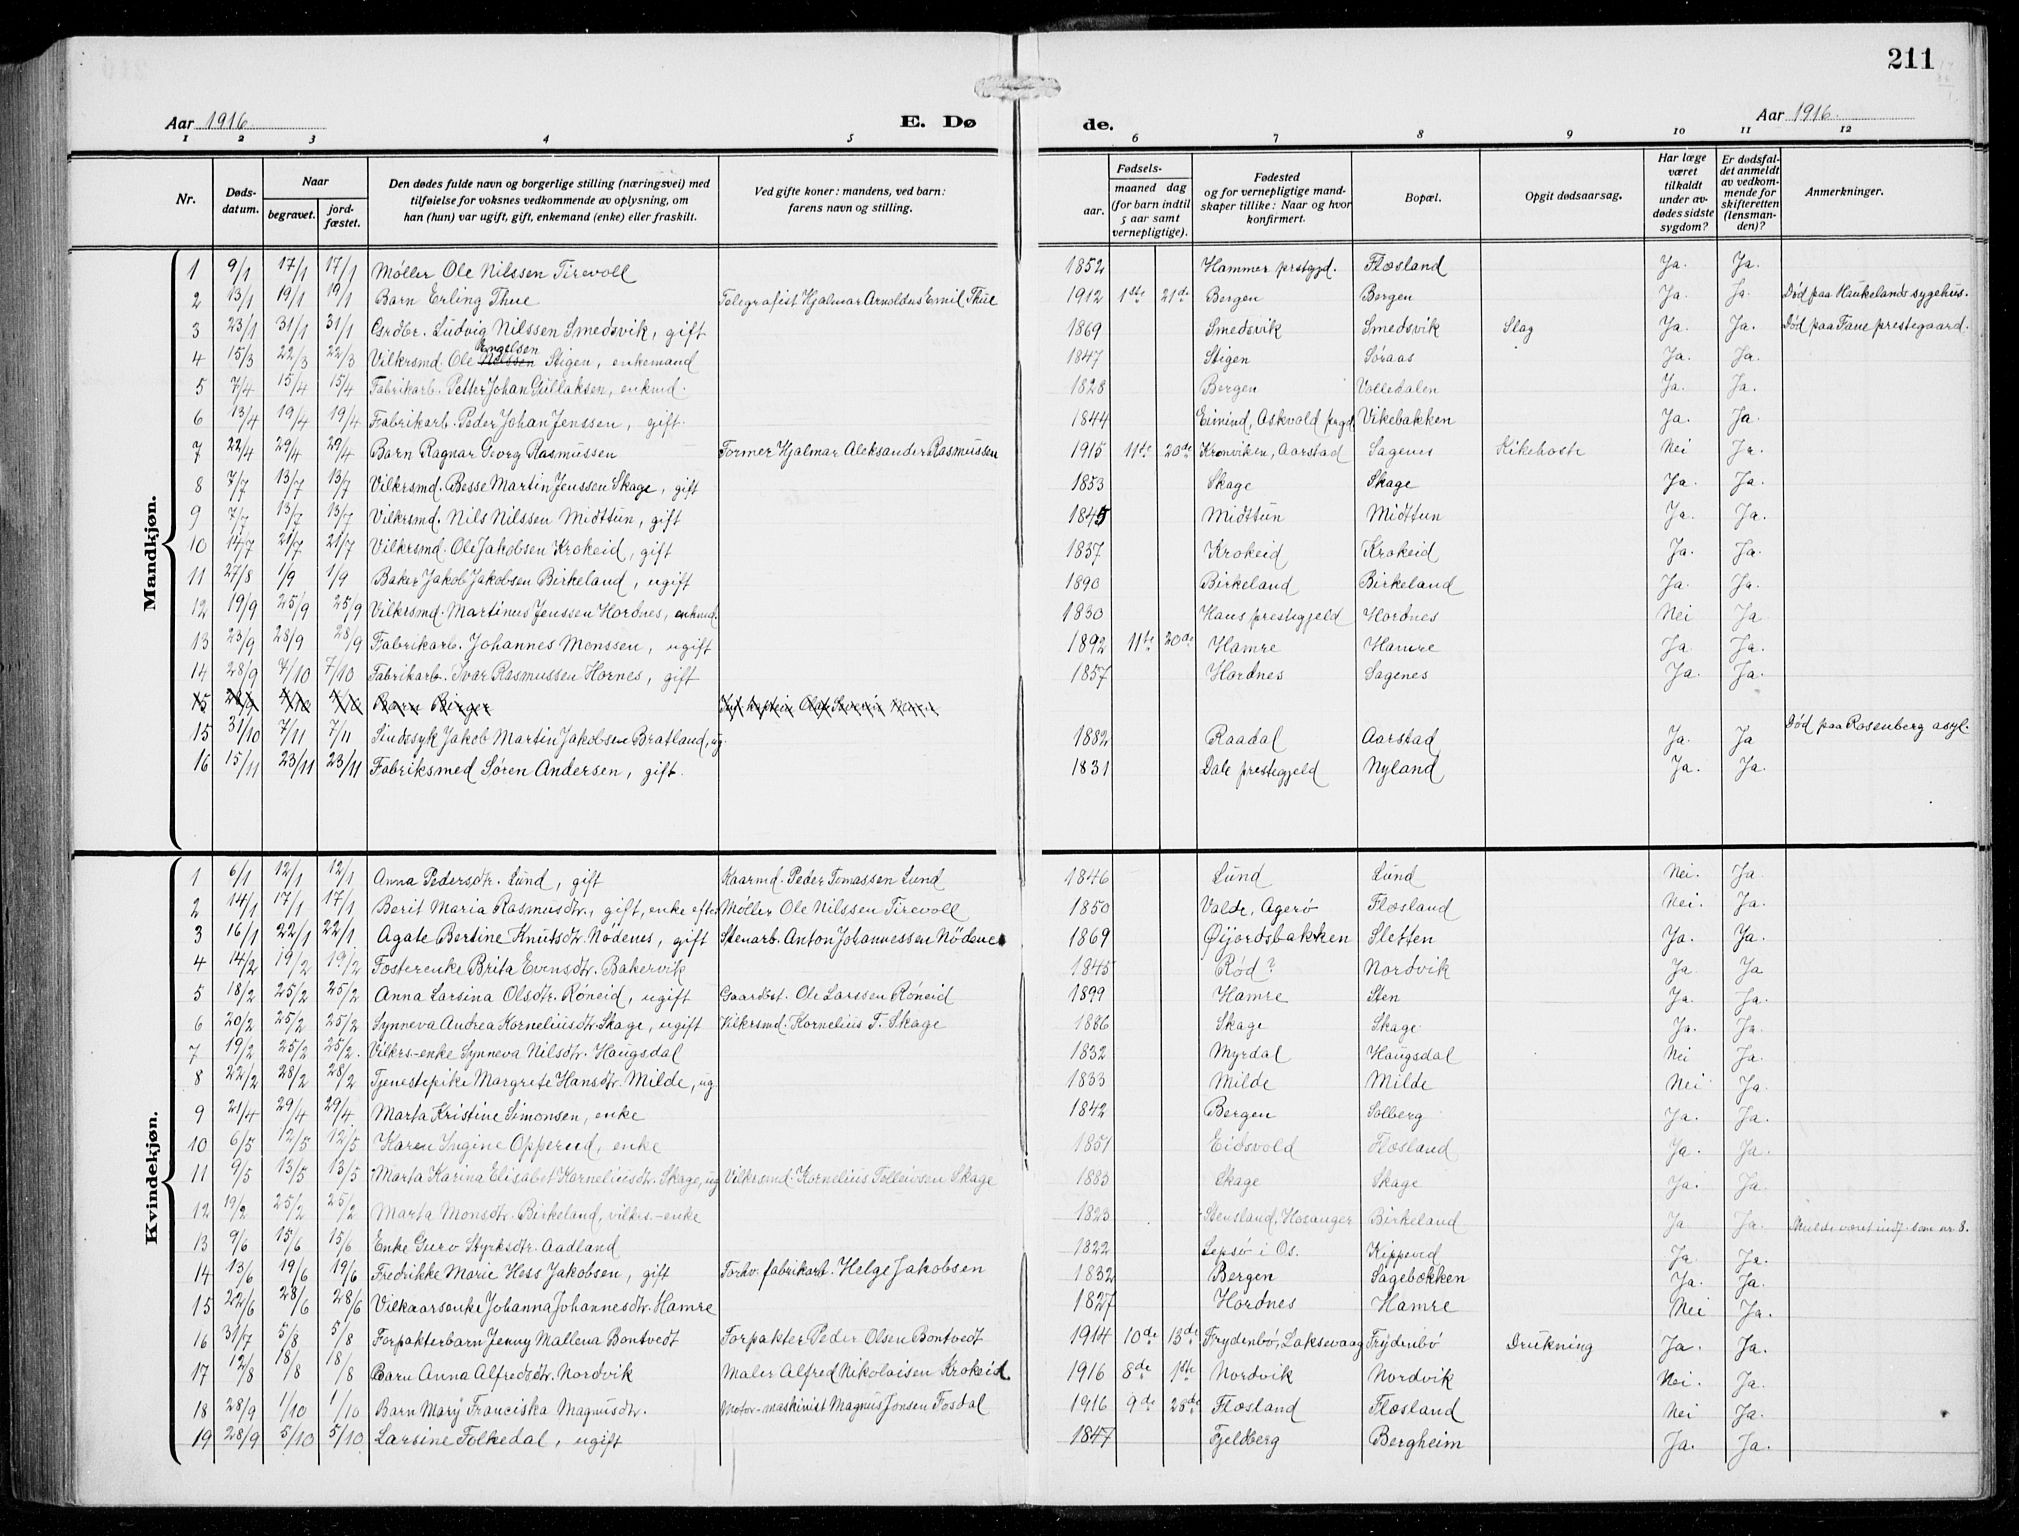 211
Aar 1916.
E. Dø
de.
Aar 1916.
1 2 3 4 5 6 7 8 9 10 11 12
Nr. Døds-datum. Naar begravet. jord-fæstet. Den dødes fulde navn og borgerlige stilling (næringsvei) med tilføielse for voksnes vedkommende av oplysning, om han (hun) var ugift, gift, enkemand (enke) eller fraskilt. Ved gifte koner: mandens, ved barn: farens navn og stilling. Fødsels- aar. maaned dag (for barn indtil 5 aar samt vernepligtige). Fødested og for vernepligtige mand-skaper tillike: Naar og hvor konfirmert. Bopæl. Opgit dødsaarsag. Har læge været tilkaldt under av-dødes sidste sygdom? Er dødsfal-det anmeldt av vedkom-mende for skifteretten (lensman-den)? Anmerkninger.
Mandkjøn.
1 9/1 17/1 17/1 Møller Ole Nilssen Tirevoll 1852 Hammer prstgjd. Flæsland Ja. Ja.
2 13/1 19/1 19/1 Barn Erling Thue Telegrafist Hjalmar Arnoldus Emil Thue 1912 1ste 21de Bergen Bergen Ja. Ja. Død paa Haukelands sygehus.
3 23/1 31/1 31/1 Grdbr. Ludvig Nilssen Smedsvik, gift 1869 Smedsvik Smedsvik Slag Ja. Ja. Død paa Fane prestegaard.
4 15/3 22/3 22/3 Vilkrsmd. Ole Nilssen Engelsen Stigen, enkemand 1847 Stigen Søraas Ja. Ja.
5 7/4 15/4 15/4 Fabrikarb. Petter Johan Gullaksen, enkmd. 1828 Bergen Volledalen Ja. Ja.
6 13/4 19/4 19/4 Fabrikarb. Peder Johan Jenssen, gift 1844 Eivind, Askvold prgd. Vikebakken Ja. Ja.
7 22/4 29/4 29/4 Barn Ragnar Georg Rasmussen Former Hjalmar Aleksander Rasmussen 1915 11te 20de Kronviken, Aarstad Sagenes Kikehoste Nei Ja.
8 7/7 13/7 13/7 Vilkrsmd. Besse Martin Jenssen Skage, gift 1853 Skage Skage Ja. Ja.
9 7/7 13/7 13/7 Vilkrsmd. Nils Nilssen Midttun, gift 1845 Midttun Midttun Ja. Ja.
10 14/7 21/7 21/7 Vilkrsmd. Ole Jakobsen Krokeid, gift 1837 Krokeid Krokeid Ja. Ja.
11 27/8 1/9 1/9 Baker Jakob Jakobsen Birkeland, ugift 1890 Birkeland Birkeland Ja. Ja.
12 19/9 25/9 25/9 Vilkrsmd. Martinus Jenssen Hordnes, enkmd. 1830 Haus prestegjeld Hordnes Nei Ja
13 23/9 28/9 28/9 Fabrikarb. Johannes Monssen, ugift 1892 11te 20de Hamre Hamre Ja. Ja.
14 28/9 7/10 7/10 Fabrikarb. Ivar Rasmussen Hornes, gift 1857 Hordnes Sagenes Ja. Ja.
15 28/9 Barn Birger
15 31/10 7/11 7/11 Sindssyk Jakob Martin Jakobsen Bratland, ug. 1882 Raadal Aarstad Ja. Ja Død paa Rosenberg asyl.
16 15/11 23/11 23/11 Fabriksmed Søren Andersen, gift. 1831 Dale prestegjeld Nyland Ja. Ja.
Kvindekjøn.
1 6/1 12/1 12/1 Anna Pedersdtr. Lund, gift Kaarmd. Peder Tomassen Lund 1846 Lund Lund Nei. Ja.
2 14/1 17/1 17/1 Berit Maria Rasmusdtr., gift, enke efter Møller Ole Nilssen Tirevoll 1850 Valde, Agerø Flæsland Nei. Ja.
3 16/1 22/1 22/1 Agate Bertine Knutsdtr. Nødenes, gift Stenarb. Anton Johannessen Nødenes 1869 Øijordsbakken Sletten Ja. Ja.
4 14/2 19/2 19/2 Fosterenke Brita Evensdtr. Bakervik 1845 Rød? Nordvik Ja Ja
5 18/2 25/2 25/2 Anna Larsina Olsdtr. Røneid, ugift Gaardbst. Ole Larssen Røneid 1899 Hamre Sten Ja. Ja.
6 20/2 25/2 25/2 Synneva Andrea Korneliusdtr. Skage, ugift Vilkrsmd. Kornelius T. Skage 1886 Skage Skage Ja. Ja.
7 19/2 25/2 25/2. Vilkrs-enke Synneva Nilsdtr. Haugsdal 1832 Myrdal Haugsdal Nei Ja.
8 22/2 28/2 28/2 Tjenestepike Margrete Hansdtr. Milde, ug. 1833 Milde Milde Nei Ja.
9 21/4 29/4 29/4. Marta Kristine Simonsen, enke 1842 Bergen Solberg Ja. Ja.
10 6/5 12/5 12/5 Karen Ingine Opperud, enke 1851 Eidsvold Flæsland Ja. Ja.
11 9/5 13/5 13/5 Marta Karina Elisabet Korneliusdtr. Skage, ug Vilkrsmd. Kornelius Tolleivsen Skage 1883 Skage Skage Ja. Ja.
12 19/2 25/2 25/2 Marta Monsdtr. Birkeland, vilkrs.-enke 1823 Stensland, Hosanger Birkeland Ja Ja. Skulde været indf. som nr. 8.
13 9/6 15/6 15/6 Enke Guro Styrksdtr. Aadland 1822 Lepsø i Os. Kippevd Ja. Ja.
14 13/6 19/6 19/6 Fredrikke Marie Hess Jakobsen, gift Forhv. fabrikarb. Helge Jakobsen 1832 Bergen Sagebækken Ja. Ja.
15 22/6 28/6 28/6 Vilkaarsenke Johanna Johannesdtr. Hamre 1827 Hordnes Hamre Nei Ja.
16 31/7 5/8 5/8 Forpakterbarn Jenny Mallena Bontvedt Forpakter Peder Olsen Bontvedt 1914 10de 13de Frydenbø, Laksevaag Frydenbø Drukning Ja. Ja.
17 12/8 18/8 18/8 Barn Anna Alfredsdtr. Nordvik Maler Alfred Nikolaisen Krokeid. 1916 8de 1ste Nordvik Nordvik Nei. Ja.
18 28/9 1/10 1/10 Barn Mary Franciska Magnusdtr. Motor-maskinist Magnus Jonsen Fosdal 1916 9de 25de Flæsland Flæsland Nei Ja.
19 28/9 5/10 5/10 Larsine Folkedal, ugift 1847 Fjeldberg Bergheim Ja. Ja.